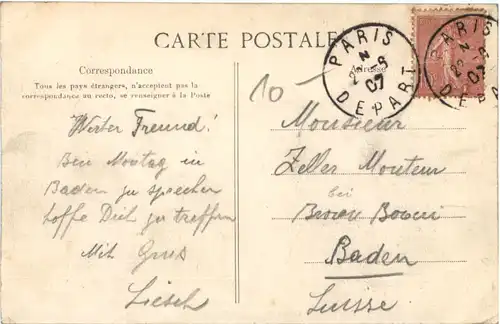 CARTE POSTALE
Correspondance
Tous les pays étrangers, n'acceptent pas la
correspondance au recto, se renseigner à la Poste
Adresse
PARIS
DEPART
07
PARIS
07
10-
Werter Freund!
Bin Montag in
Baden zu sprechen
hoffe Dich zu treffen
Mit Grus
Liesch
Monsieur
Zeller Monteur
bei
Brown Boveri
Baden
Suisse